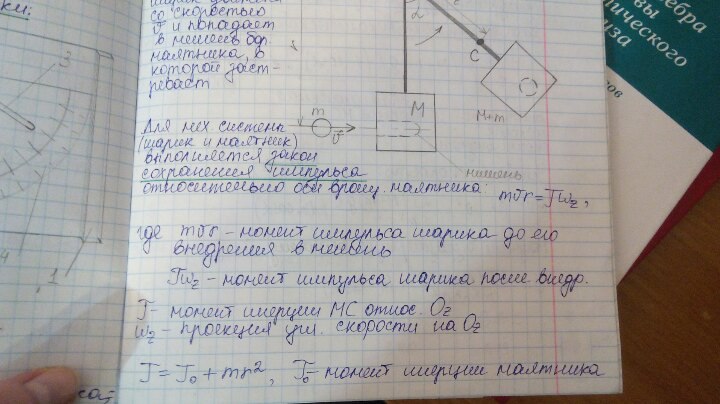 ки:
шарик движется
со скоростью
v и попадает
в мишень бал.
маятника, в
которой заст-
ревает
α
c
C
M
M+m
m
v
мишень
Для мех. системы
(шарик и маятник)
выполняется закон
сохранения импульса
относительно оси вращ. маятника: mvr=Jωz,
где mvr - момент импульса шарика до его
внедрения в мишень
Jωz - момент импульса шарика после внедр.
J - момент инерции МС относ. Oz
ωz - проекция угл. скорости на Oz
J = J₀ + mr², J₀ - момент инерции маятника
3
4
1